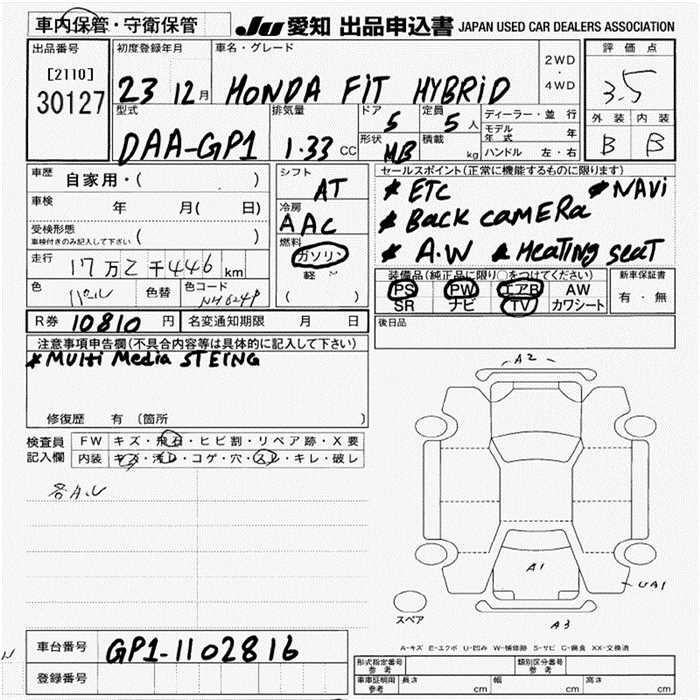 車内保管・守衛保管
JU 愛知 出品申込書 JAPAN USED CAR DEALERS ASSOCIATION
出品番号 初度登録年月 車名・グレード 2WD・4WD 評価点
[2110]
30127 23 12月 HONDA FiT HYBRiD 3.5
型式 排気量 ドア 定員 ディーラー・並行 外装 内装
DAA-GP1 1.33 CC 5 5人 モデル年式 年 B B
形状 積載 ハンドル 左・右
MB kg
車歴 自家用・( ) シフト AT セールスポイント(正常に機能するものに限る)
* ETC * NAVi
車検 年 月(日) 冷房 AAC * BACK CAMERA
受検形態 車検付きのみ記入して下さい ( ) 燃料 ガソリン * A.W * HEATiNG SEAT
走行 17万2千446km 軽 装備品(純正品に限り○をつけてください) 新車保証書
色 パール 色替 色コード NH624P ( ) PS PW エアB AW 有・無
SR ナビ TV カワシート
R券 10810円 名変通知期限 月 日 後日品
注意事項申告欄(不具合内容等は具体的に記入して下さい)
* MULTi MEDiA STEiNG
修復歴 有 (箇所 )
検査員 FW キズ・飛石・ヒビ割・リペア跡・X要
記入欄 内装 キズ・汚レ・コゲ・穴・スレ・キレ・破レ
各A.U
A2
A1
UA1
スペア
A3
A-キズ E-エクボ U-凹み W-補修跡 S-サビ C-腐食 XX-交換済
車台番号 GP1-1102816
登録番号
形式指定番号 参考 類別区分番号 参考
車庫証明用 参考 長さ cm 幅 cm 高さ cm